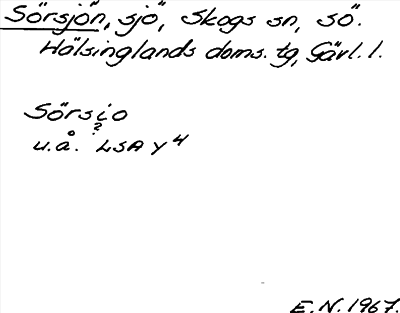 Sörsjön, sjö, Skogs sn, sö.
Hälsinglands doms. tg, Gävl. l.
Sörsio
?
u.å. LSA Y 4
E.N. 1967.